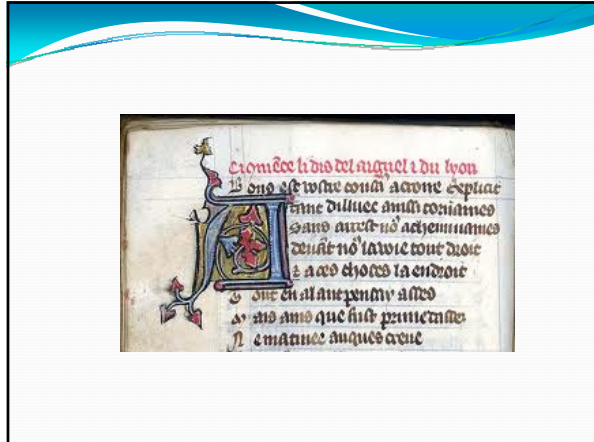 Ci om̃ece li dis del aiguel ⁊ du lyon
B ons est vostre consā a trone Explicit
A tant dilluec ainssi tornames
Sans arrest no acheminames
deuāt no la voie tout droit
⁊ a ces choses la endroit
out en alant pensay asses
ais ains que fust
N e matinee auques creue